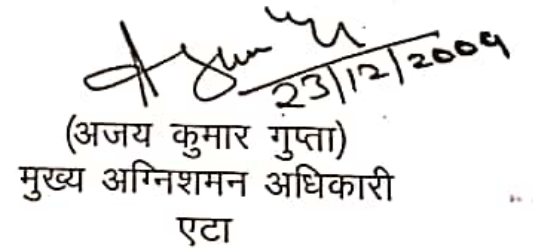 23/12/2009
(अजय कुमार गुप्ता)
मुख्य अग्निशमन अधिकारी
एटा